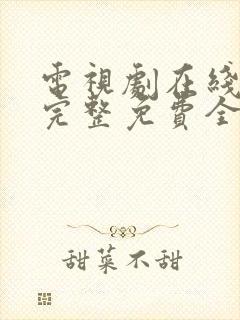 電視劇在綫
完整免費全
甜菜不甜